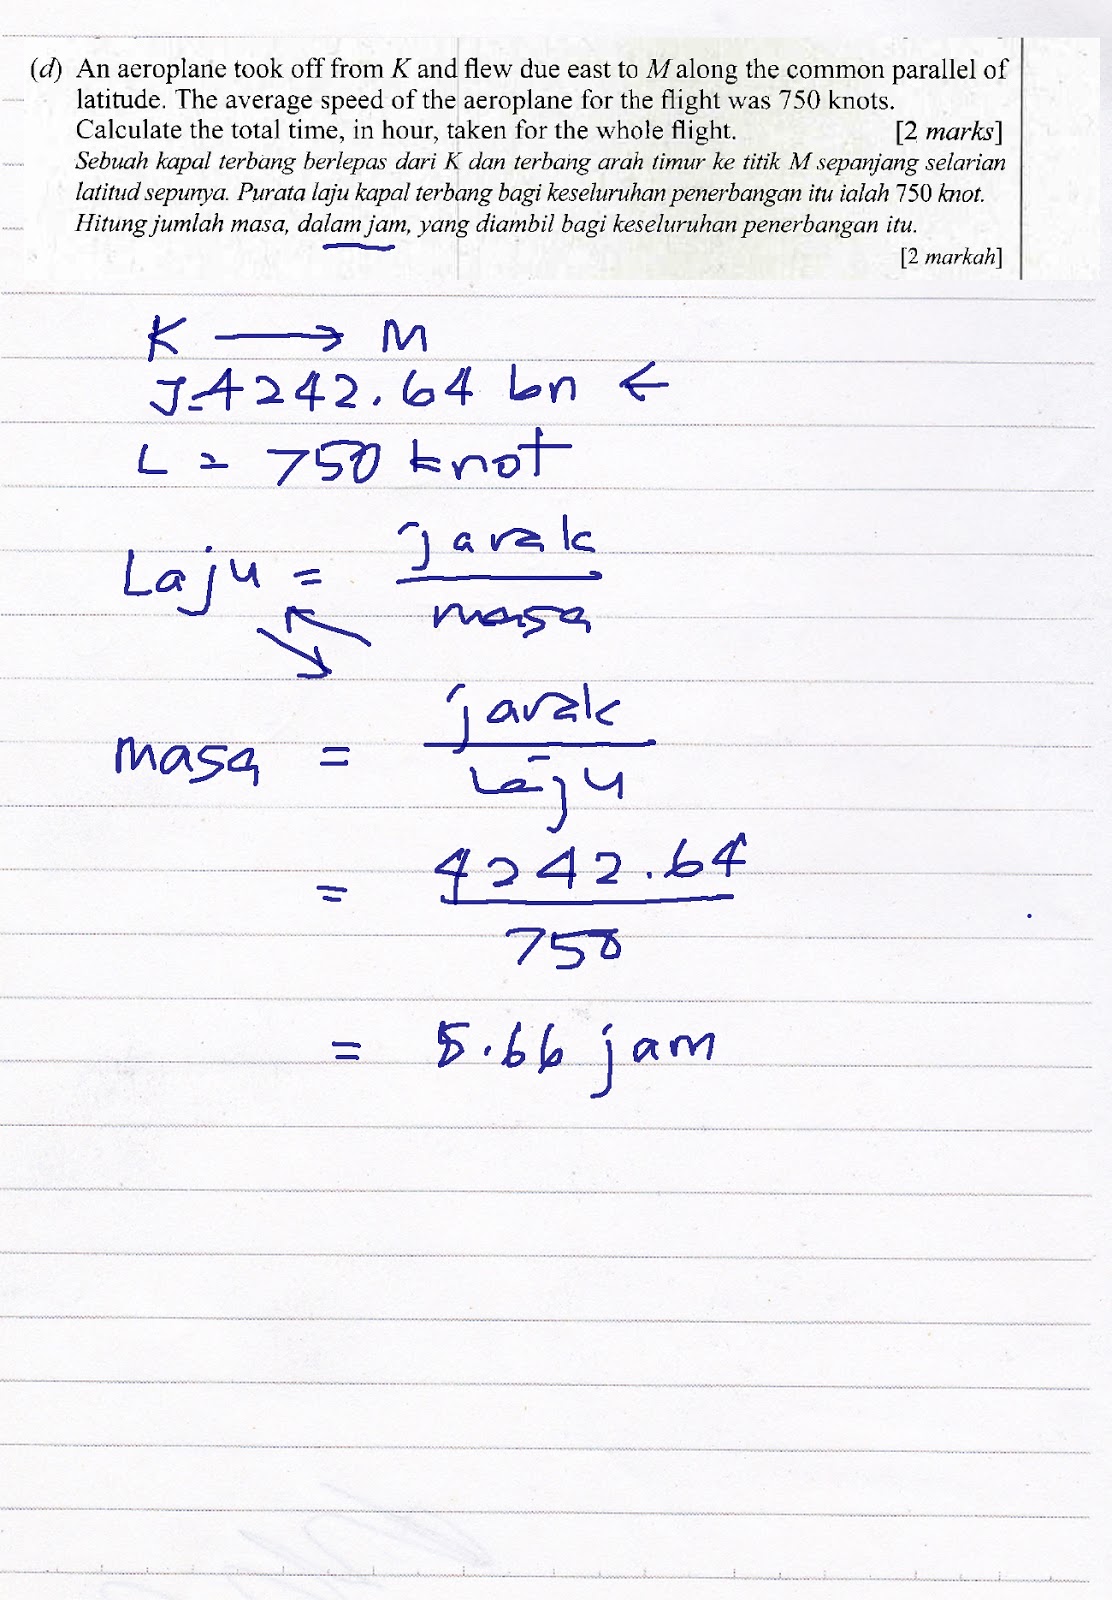 (d) An aeroplane took off from K and flew due east to M along the common parallel of
latitude. The average speed of the aeroplane for the flight was 750 knots.
Calculate the total time, in hour, taken for the whole flight. [2 marks]
Sebuah kapal terbang berlepas dari K dan terbang arah timur ke titik M sepanjang selarian
latitud sepunya. Purata laju kapal terbang bagi keseluruhan penerbangan itu ialah 750 knot.
Hitung jumlah masa, dalam jam, yang diambil bagi keseluruhan penerbangan itu.
[2 markah]
K → M
J = 4242.64 bn ←
L = 750 knot
Laju = jarak
masa
masa = jarak
Laju
= 4242.64
750
= 5.66 jam